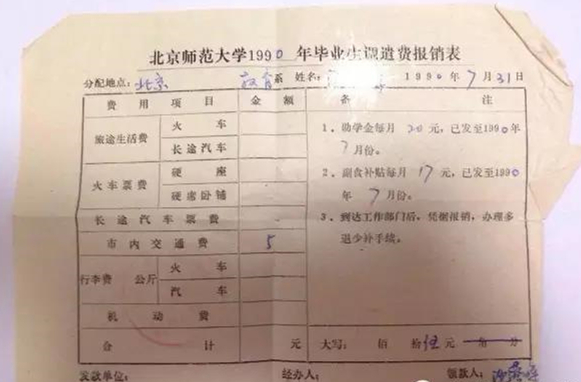 北京师范大学1990年毕业生调遣费报销表
分配地点：北京 教育系 姓名： 1990年7月31日
费用项目 金额 备注
旅途生活费 火车
长途汽车
火车票费 硬座
硬席卧铺
长途汽车票费
市内交通费 5
行李费 公斤 火车
汽车
机动费
合计 元 大写： 佰 拾伍元 角 分
1、助学金每月 元，已发至1990年
7月份。
2、副食补贴每月17元，已发至1990
年7月份。
3、到达工作部门后，凭据报销，办理多
退少补手续。
发款单位： 经办人： 领款人：